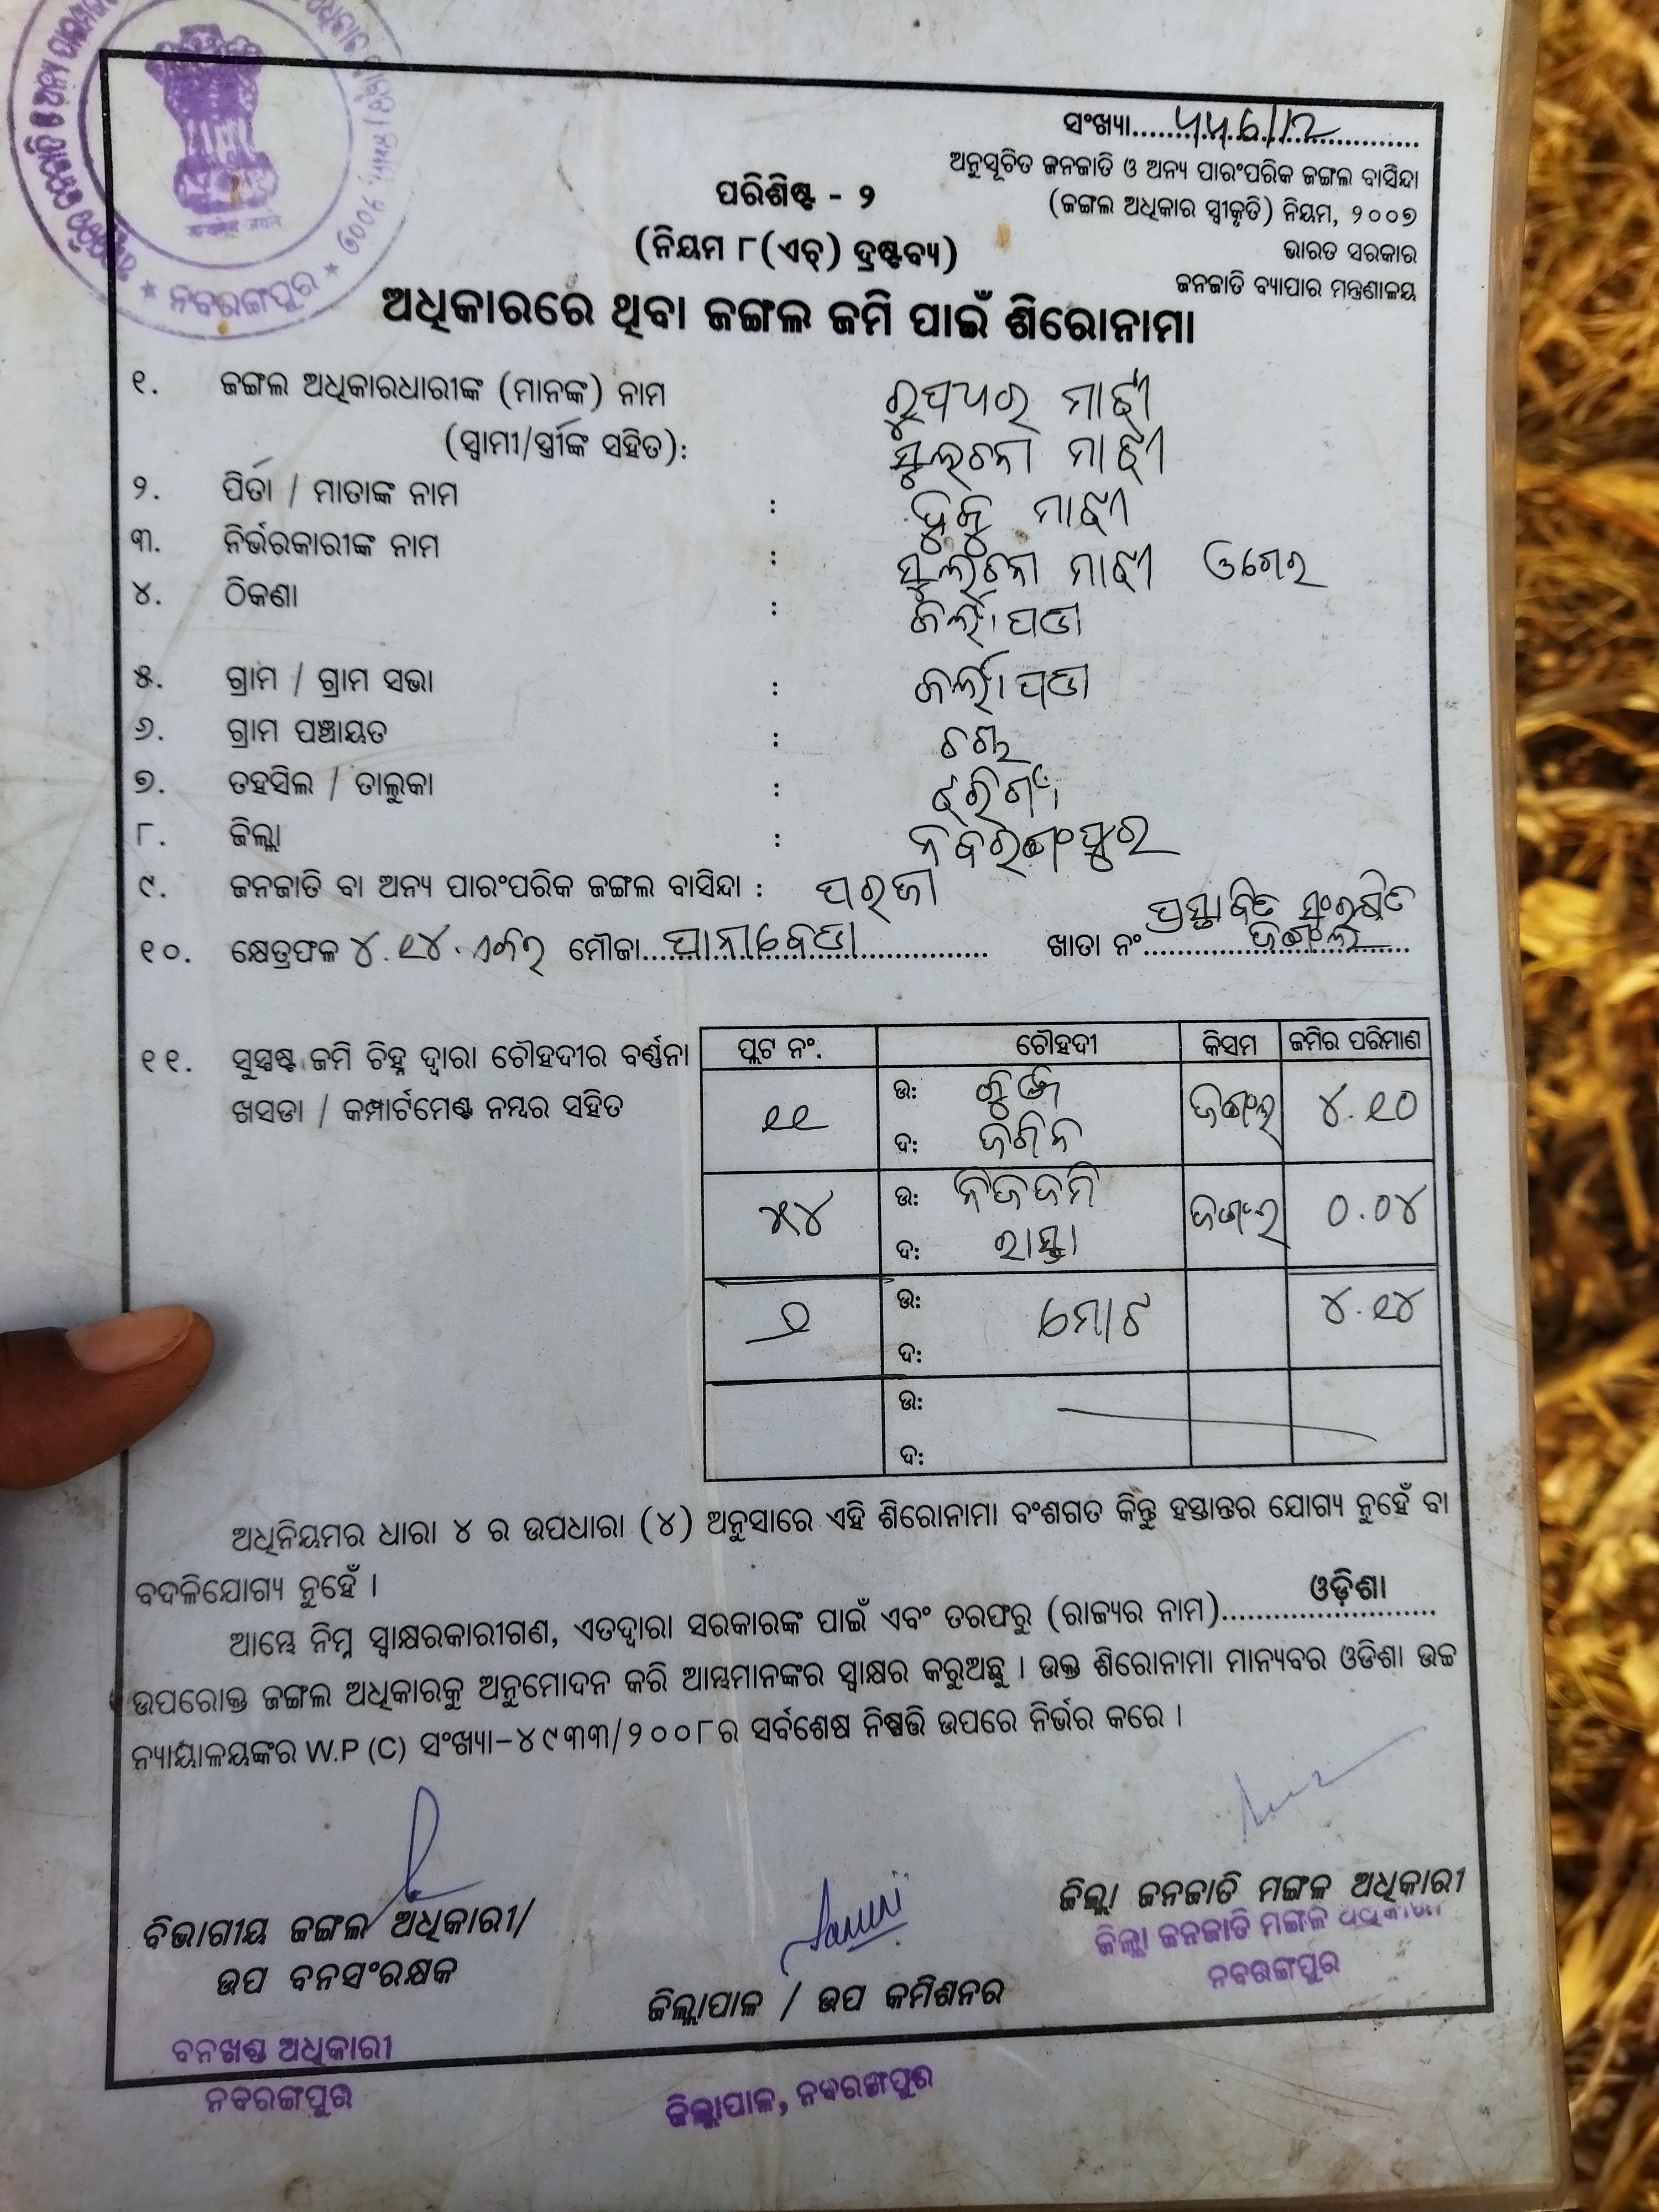 ସଂଖ୍ୟା
ଅନୁସୂଚିତ ଜନଜାତି ଓ ଅନ୍ୟ ପାରଂପରିକ ଜଙ୍ଗଲ ବାସିନ୍ଦା
(ଜଙ୍ଗଲ ଅଧିକାର ସ୍ୱୀକୃତି) ନିୟମ, ୨୦୦୭
ଭାରତ ସରକାର
ଜନଜାତି ବ୍ୟାପାର ମନ୍ତ୍ରଣାଳୟ
ପରିଶିଷ୍ଟ - ୨
(ନିୟମ ୮(ଏଚ୍) ଦ୍ରଷ୍ଟବ୍ୟ)
ନବରଙ୍ଗପୁର
ଅଧିକାରରେ ଥିବା ଜଙ୍ଗଲ ଜମି ପାଇଁ ଶିରୋନାମା
୧. ଜଙ୍ଗଲ ଅଧିକାରଧାରୀଙ୍କ (ମାନଙ୍କ) ନାମ ମାଝୀ
(ସ୍ୱାମୀ/ସ୍ତ୍ରୀଙ୍କ ସହିତ): ମାଝୀ
୨. ପିତା / ମାତାଙ୍କ ନାମ : ମାଝୀ
୩. ନିର୍ଭରକାରୀଙ୍କ ନାମ : ମାଝୀ
୪. ଠିକଣା :
୫. ଗ୍ରାମ / ଗ୍ରାମ ସଭା :
୬. ଗ୍ରାମ ପଞ୍ଚାୟତ :
୭. ତହସିଲ / ତାଲୁକା :
୮. ଜିଲ୍ଲା : ନବରଙ୍ଗପୁର
୯. ଜନଜାତି ବା ଅନ୍ୟ ପାରଂପରିକ ଜଙ୍ଗଲ ବାସିନ୍ଦା : ପରଜା
୧୦. କ୍ଷେତ୍ରଫଳ ୪.୧୪ ଏକର ମୌଜା ପାନୀବେଡା ଖାତା ନଂ ପ୍ରସ୍ତାବିତ ସଂରକ୍ଷିତ ଜଙ୍ଗଲ
୧୧. ସୁସ୍ପଷ୍ଟ ଜମି ଚିହ୍ନ ଦ୍ୱାରା ଚୌହଦୀର ବର୍ଣ୍ଣନା
ଖସଡା / କମ୍ପାର୍ଟମେଣ୍ଟ ନମ୍ବର ସହିତ
ପ୍ଲଟ ନଂ. ଚୌହଦୀ କିସମ ଜମିର ପରିମାଣ
୧୧ ଉ: ଜଙ୍ଗଲ ୪.୧୦
ଦ:
୫୪ ଉ: ନିଜଜମି ଜଙ୍ଗଲ ୦.୦୪
ଦ: ରାସ୍ତା
୨ ଉ: ମୋଟ ୪.୧୪
ଦ:
ଉ:
ଦ:
ଅଧିନିୟମର ଧାରା ୪ ର ଉପଧାରା (୪) ଅନୁସାରେ ଏହି ଶିରୋନାମା ବଂଶଗତ କିନ୍ତୁ ହସ୍ତାନ୍ତର ଯୋଗ୍ୟ ନୁହେଁ ବା
ବଦଳିଯୋଗ୍ୟ ନୁହେଁ ।
ଆମ୍ଭେ ନିମ୍ନ ସ୍ୱାକ୍ଷରକାରୀଗଣ, ଏତଦ୍ୱାରା ସରକାରଙ୍କ ପାଇଁ ଏବଂ ତରଫରୁ (ରାଜ୍ୟର ନାମ) ଓଡ଼ିଶା
ଉପରୋକ୍ତ ଜଙ୍ଗଲ ଅଧିକାରକୁ ଅନୁମୋଦନ କରି ଆମ୍ଭମାନଙ୍କର ସ୍ୱାକ୍ଷର କରୁଅଛୁ । ଉକ୍ତ ଶିରୋନାମା ମାନ୍ୟବର ଓଡିଶା ଉଚ୍ଚ
ନ୍ୟାୟାଳୟଙ୍କର W.P (C) ସଂଖ୍ୟା-୪୯୩୩/୨୦୦୮ର ସର୍ବଶେଷ ନିଷ୍ପତ୍ତି ଉପରେ ନିର୍ଭର କରେ ।
ବିଭାଗୀୟ ଜଙ୍ଗଲ ଅଧିକାରୀ/
ଉପ ବନସଂରକ୍ଷକ
ବନଖଣ୍ଡ ଅଧିକାରୀ
ନବରଙ୍ଗପୁର
ଜିଲ୍ଲାପାଳ / ଉପ କମିଶନର
ଜିଲ୍ଲାପାଳ, ନବରଙ୍ଗପୁର
ଜିଲ୍ଲା ଜନଜାତି ମଙ୍ଗଳ ଅଧିକାରୀ
ଜିଲ୍ଲା ଜନଜାତି ମଙ୍ଗଳ ଅଧିକାରୀ
ନବରଙ୍ଗପୁର